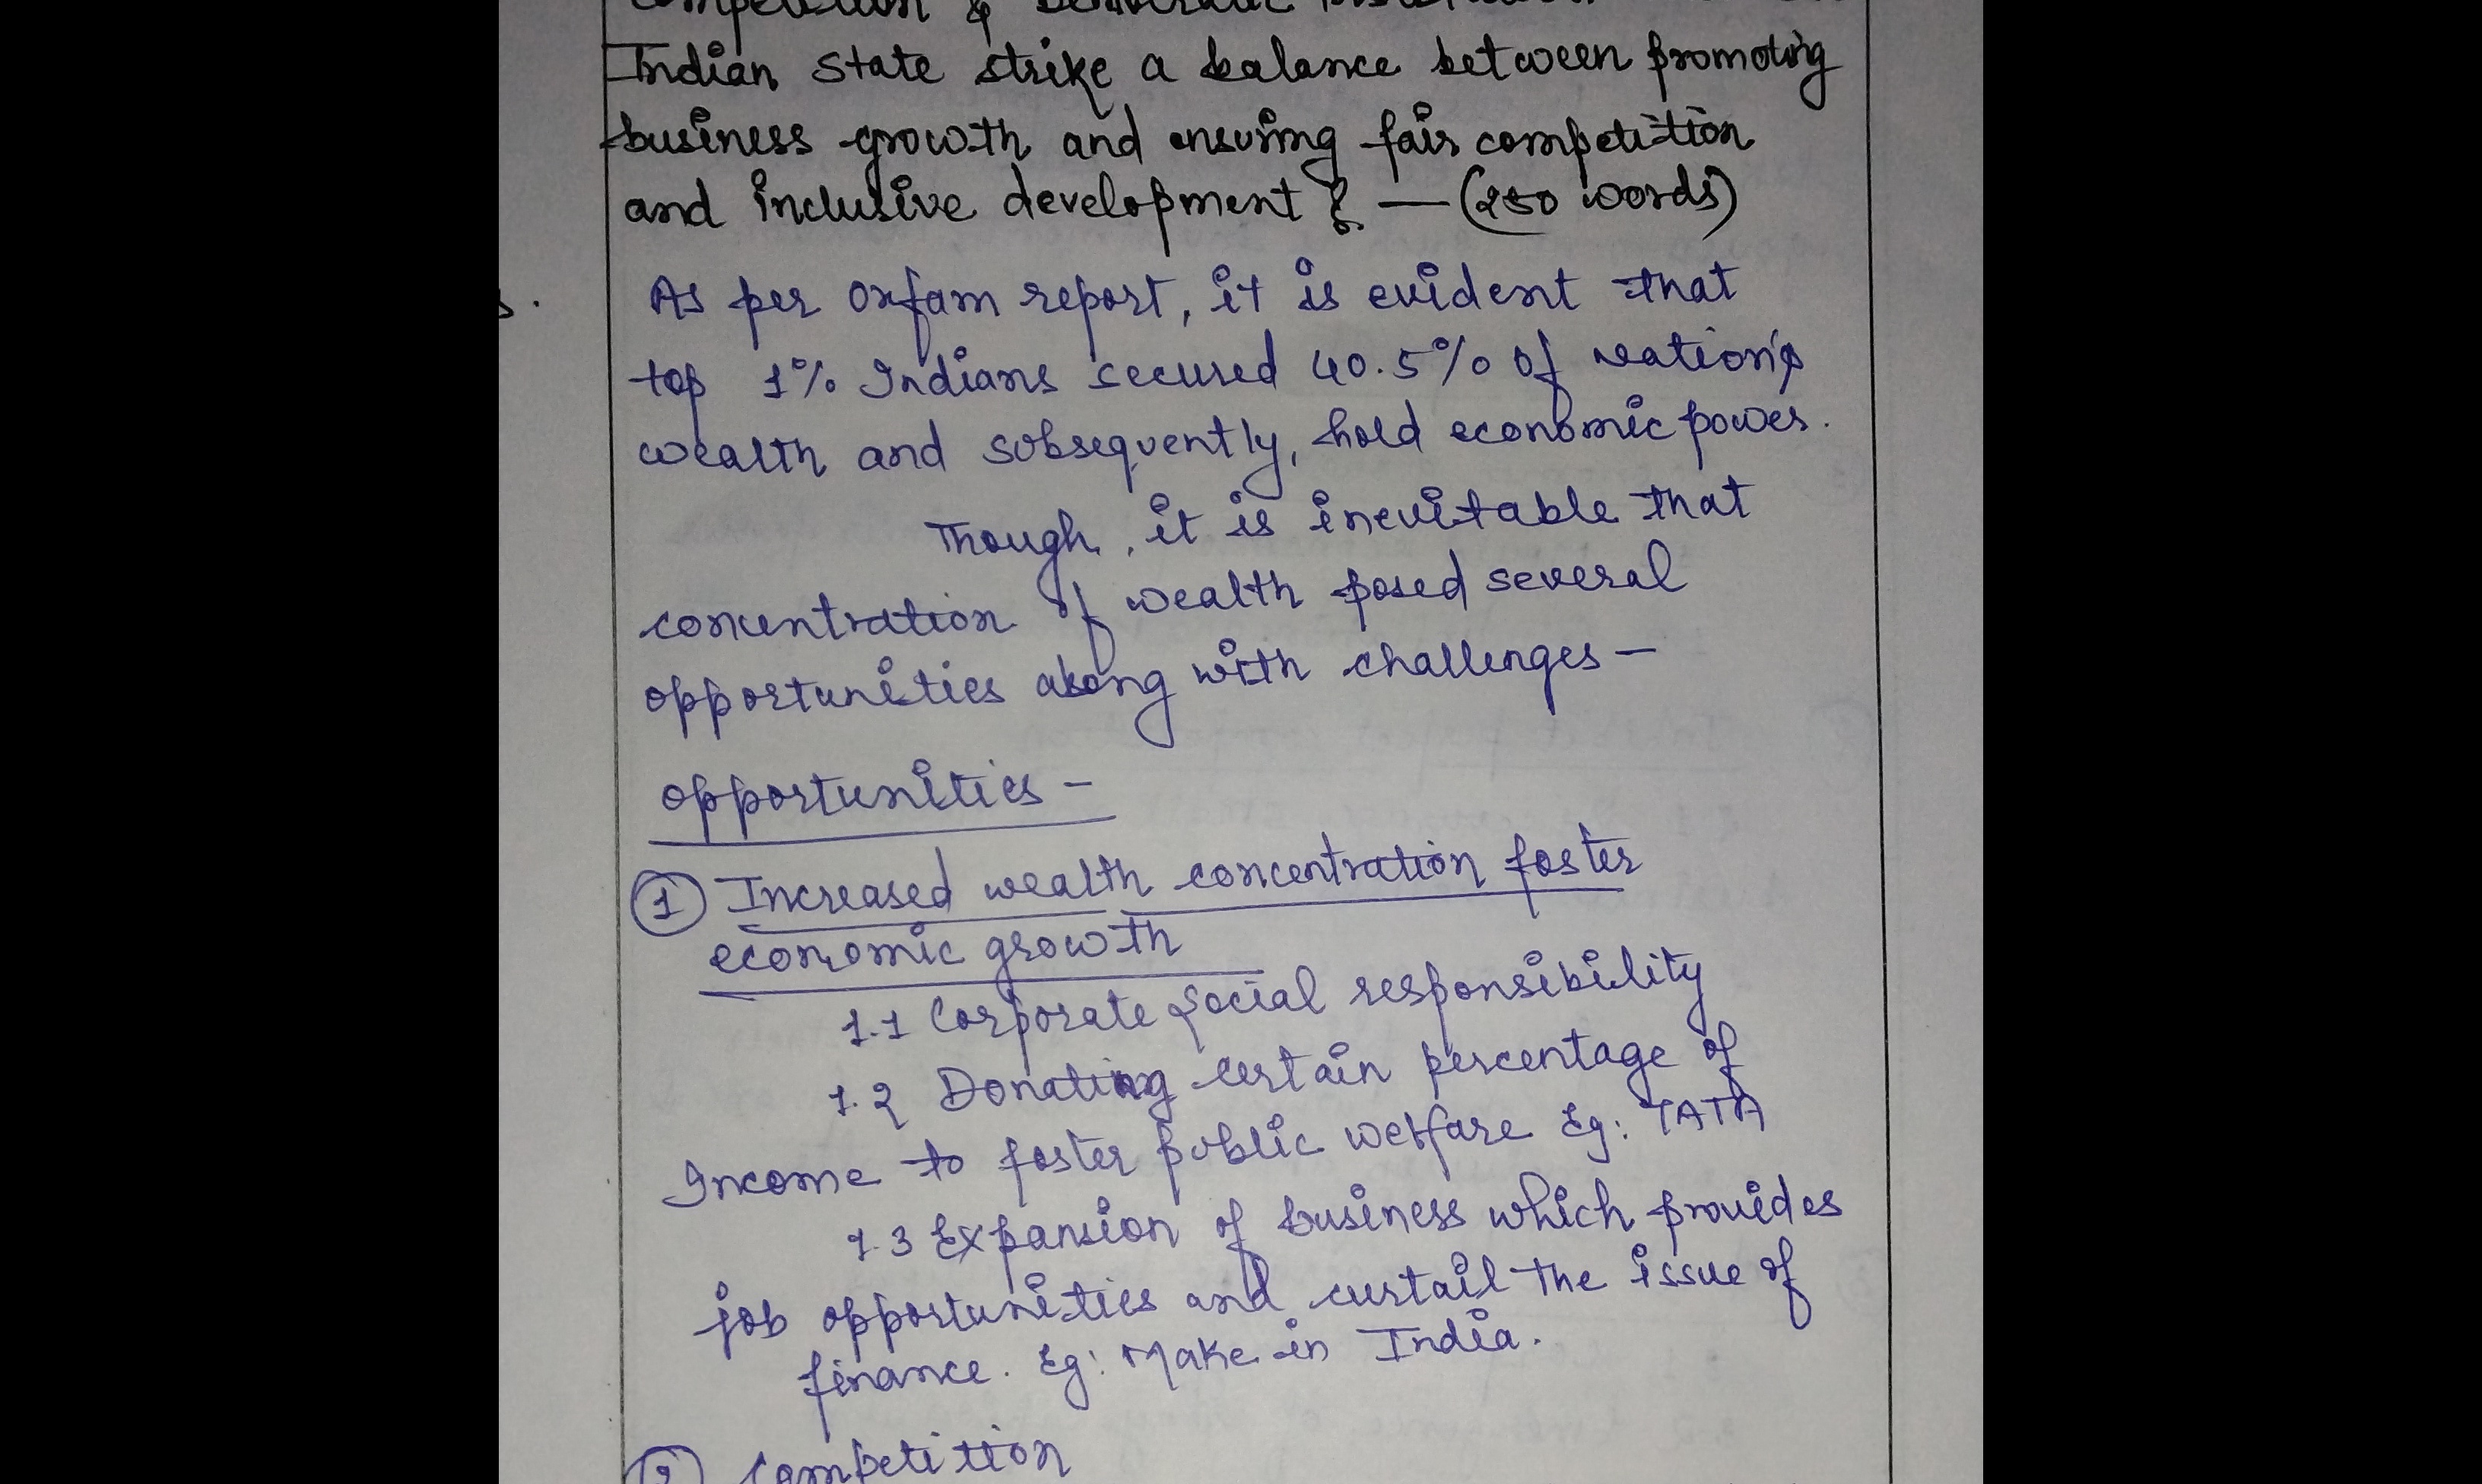 competition & Democratic
Indian state strike a balance between promoting
business growth and ensuring fair competition
and inclusive development? — (250 words)
s.
As per Oxfam report, it is evident that
top 1% Indians secured 40.5% of nation's
wealth and subsequently, hold economic power.
Though, it is inevitable that
concentration of wealth posed several
opportunities along with challenges –
opportunities –
1 Increased wealth concentration foster
economic growth
1.1 Corporate social responsibility
1.2 Donating certain percentage of
Income to foster public welfare Eg: TATA
1.3 Expansion of business which provides
job opportunities and curtail the issue of
finance. Eg: Make in India.
2 Competition